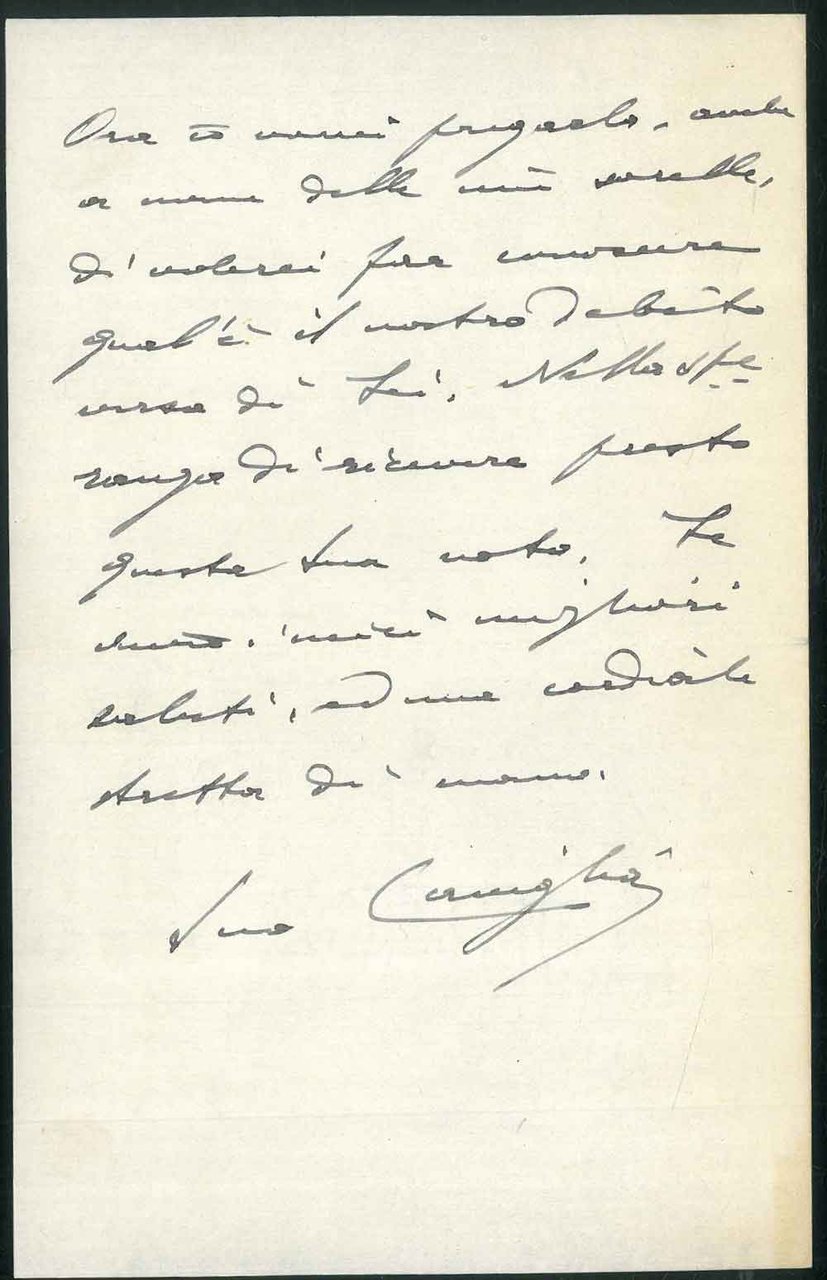 Ora io vorrei pregarla, anche
a nome delle mie sorelle,
di volerci far conoscere
qual'è il nostro debito
verso di Lei. Nella spe
ranza di ricevere presto
questa sua nota, Le
invio, i miei migliori
saluti, ed una cordiale
stretta di mano.
Suo Caniglia